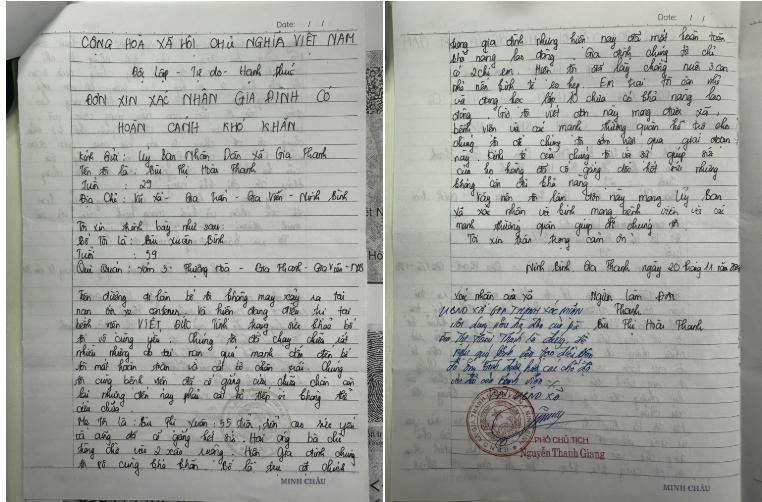 Date: / /
CỘNG HOÀ XÃ HỘI CHỦ NGHĨA VIỆT NAM
Độc Lập - Tự do - Hạnh phúc
ĐƠN XIN XÁC NHẬN GIA ĐÌNH CÓ
HOÀN CẢNH KHÓ KHĂN
Kính Gửi: Uỷ Ban Nhân Dân Xã Gia Thanh
Tên tôi là: Bùi Thị Hoài Thanh
Tuổi : 29
Địa Chỉ: - Gia - Gia Viễn - Ninh Bình
Tôi xin trình bày như sau:
Bố Tôi là: Bùi Xuân Bình
Tuổi : 59
Quê Quán: Xóm 3 - Thượng Hoà - Gia Thanh - Gia Viễn - NB
Trên đường đi làm bố tôi không may xảy ra tai
nạn và hiện đang điều trị tại
bệnh viện VIỆT ĐỨC. Tình trạng sức khoẻ bố
tôi vô cùng yếu. Chúng tôi đã chạy chữa rất
nhiều nhưng do tai nạn quá mạnh dẫn đến bố
tôi mất hoàn toàn và cắt bỏ chân phải. Chúng
tôi cùng bệnh viện đã cố gắng cứu chữa chân còn
lại nhưng đến nay phải cắt bỏ tiếp vì không thể
cứu chữa.
Mẹ Tôi là: Bùi Thị Xuân: 55 tuổi, sức yếu
và cũng đã cố gắng hết sức. Hai ông bà chỉ
trông chờ vào 2 sào ruộng. Hiện Gia đình chúng
tôi vô cùng khó khăn. Bố là trụ cột chính
MINH CHÂU
Date: / /
trong gia đình nhưng hiện nay đã mất hoàn toàn
khả năng lao động. Gia đình chúng tôi chỉ
có 2 chị em. Hiện tôi đã lấy chồng nuôi 3 con
nhỏ nên kinh tế eo hẹp. Em trai tôi còn nhỏ
và đang học lớp 10 chưa có khả năng lao
động. Giờ tôi viết đơn này mong được xã,
bệnh viện và các mạnh thường quân hỗ trợ cho
chúng tôi để chúng tôi sớm vượt qua giai đoạn
này. Kinh tế của chúng tôi và sự giúp sức
của họ hàng đã cố gắng hết sức nhưng
không còn đủ khả năng.
Vậy nên tôi làm đơn này mong Uỷ Ban
xã xác nhận và kính mong bệnh viện và các
mạnh thường quân giúp đỡ chúng tôi.
Tôi xin trân trọng cảm ơn!
Ninh Bình Gia Thanh ngày 20 tháng 11 năm
Xác nhận của xã
Người Làm Đơn
Thanh
Bùi Thị Hoài Thanh
UBND XÃ GIA THANH XÁC NHẬN
Bùi Thị Hoài Thanh là đúng, đề
UBND XÃ
PHÓ CHỦ TỊCH
Nguyễn Thanh Giang
MINH CHÂU